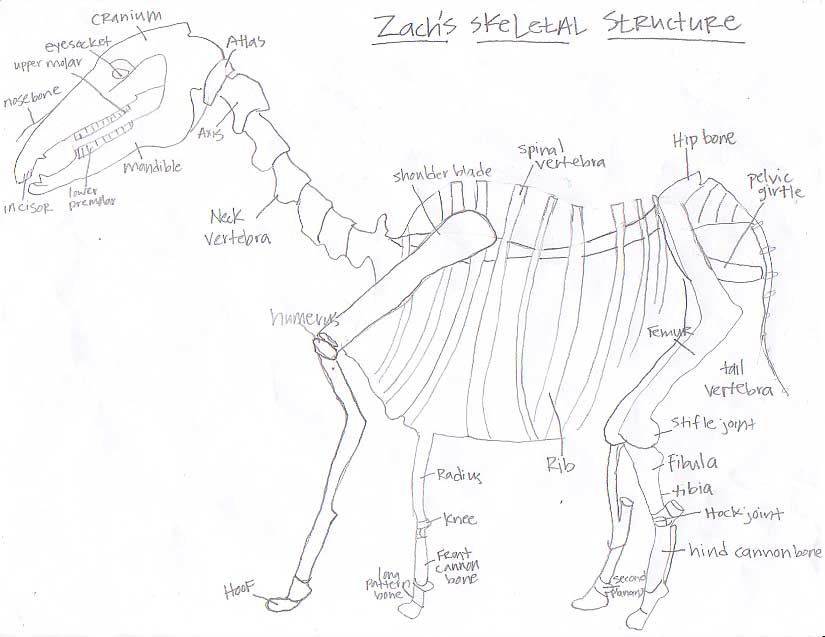 Zach's Skeletal Structure
cranium
eyesocket
upper molar
nosebone
Atlas
Axis
Mandible
incisor
lower
premolar
Neck
vertebra
shoulder blade
spinal
vertebra
Hip bone
pelvic
girtle
humerus
Femur
tail
vertebra
Stifle joint
Rib
Radius
Fibula
tibia
Knee
Hock joint
Front
cannon
bone
hind cannon bone
Hoof
long
pattern
bone
second